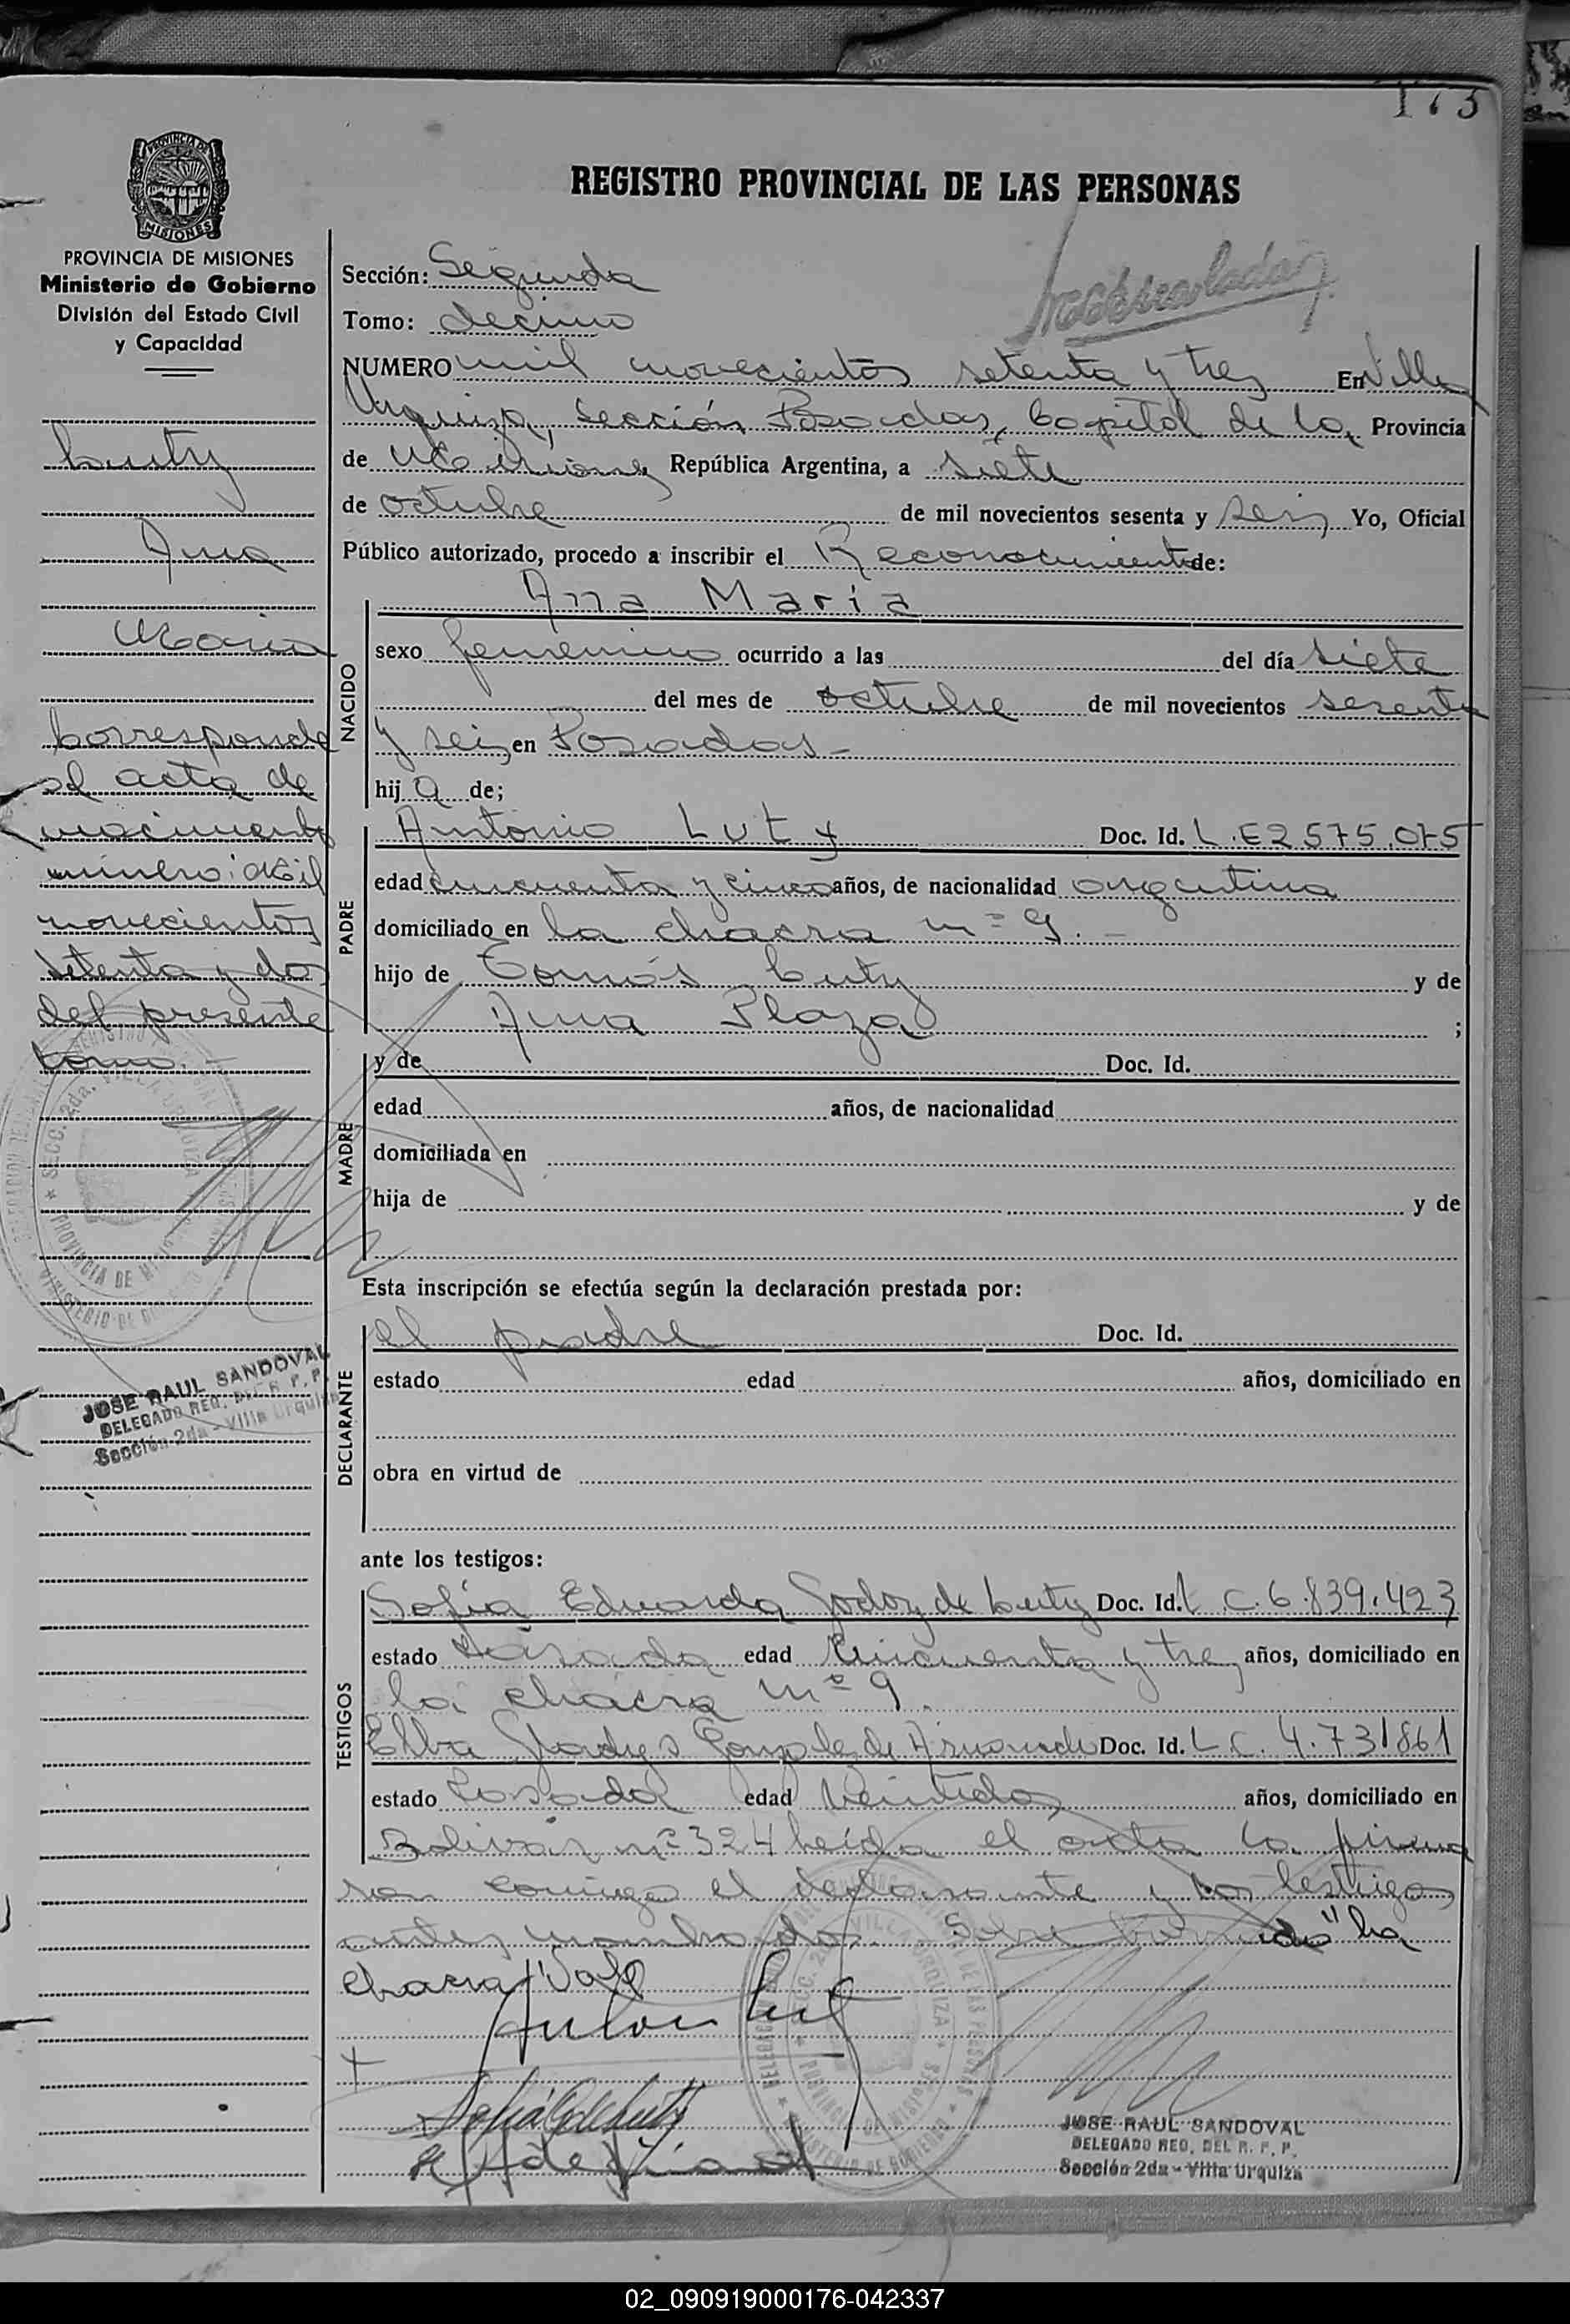 173
PROVINCIA DE MISIONES
Ministerio de Gobierno
División del Estado Civil
y Capacidad
REGISTRO PROVINCIAL DE LAS PERSONAS
Sección: Segunda
Tomo: decimo
NUMERO mil novecientos setenta y tres En Villa
Urquiza, Sección Posadas, Capital de la Provincia
de Misiones República Argentina, a siete
de octubre de mil novecientos sesenta y seis Yo, Oficial
Público autorizado, procedo a inscribir el Reconocimiento de:
Luty
Ana
Maria
Corresponde
al acta de
nacimiento
número: Mil
novecientos
setenta y dos
del presente
tomo.-
JOSE RAUL SANDOVAL
DELEGADO REG. DEL R. P. P.
Sección 2da - Villa Urquiza
NACIDO
Ana Maria
sexo femenino ocurrido a las del día siete
del mes de octubre de mil novecientos sesenta
y seis en Posadas-
hija de;
PADRE
Antonio Luty Doc. Id. L.E 2.575.075
edad cincuenta y cinco años, de nacionalidad argentina
domiciliado en la chacra nº 9.-
hijo de Tomás Luty y de
Ana Plaza ;
MADRE
y de Doc. Id.
edad años, de nacionalidad
domiciliada en
hija de y de
Esta inscripción se efectúa según la declaración prestada por:
DECLARANTE
el padre Doc. Id.
estado edad años, domiciliado en
obra en virtud de
ante los testigos:
TESTIGOS
Sofia Eduarda Godoy de Luty Doc. Id. L.C. 6.839.423
estado casada edad cincuenta y tres años, domiciliado en
la chacra nº 9.
Elba Gladys Gonzalez de Doc. Id. L.C. 4.731861
estado Casada edad Veintidos años, domiciliado en
Bolivar nº 324 Leída el acta la firma
ron conmigo el declarante y los testigos
antes nombrados. Sobre borrado "la
chacra" Vale
JOSE RAUL SANDOVAL
DELEGADO REG. DEL R. P. P.
Sección 2da - Villa Urquiza
02_090919000176-042337